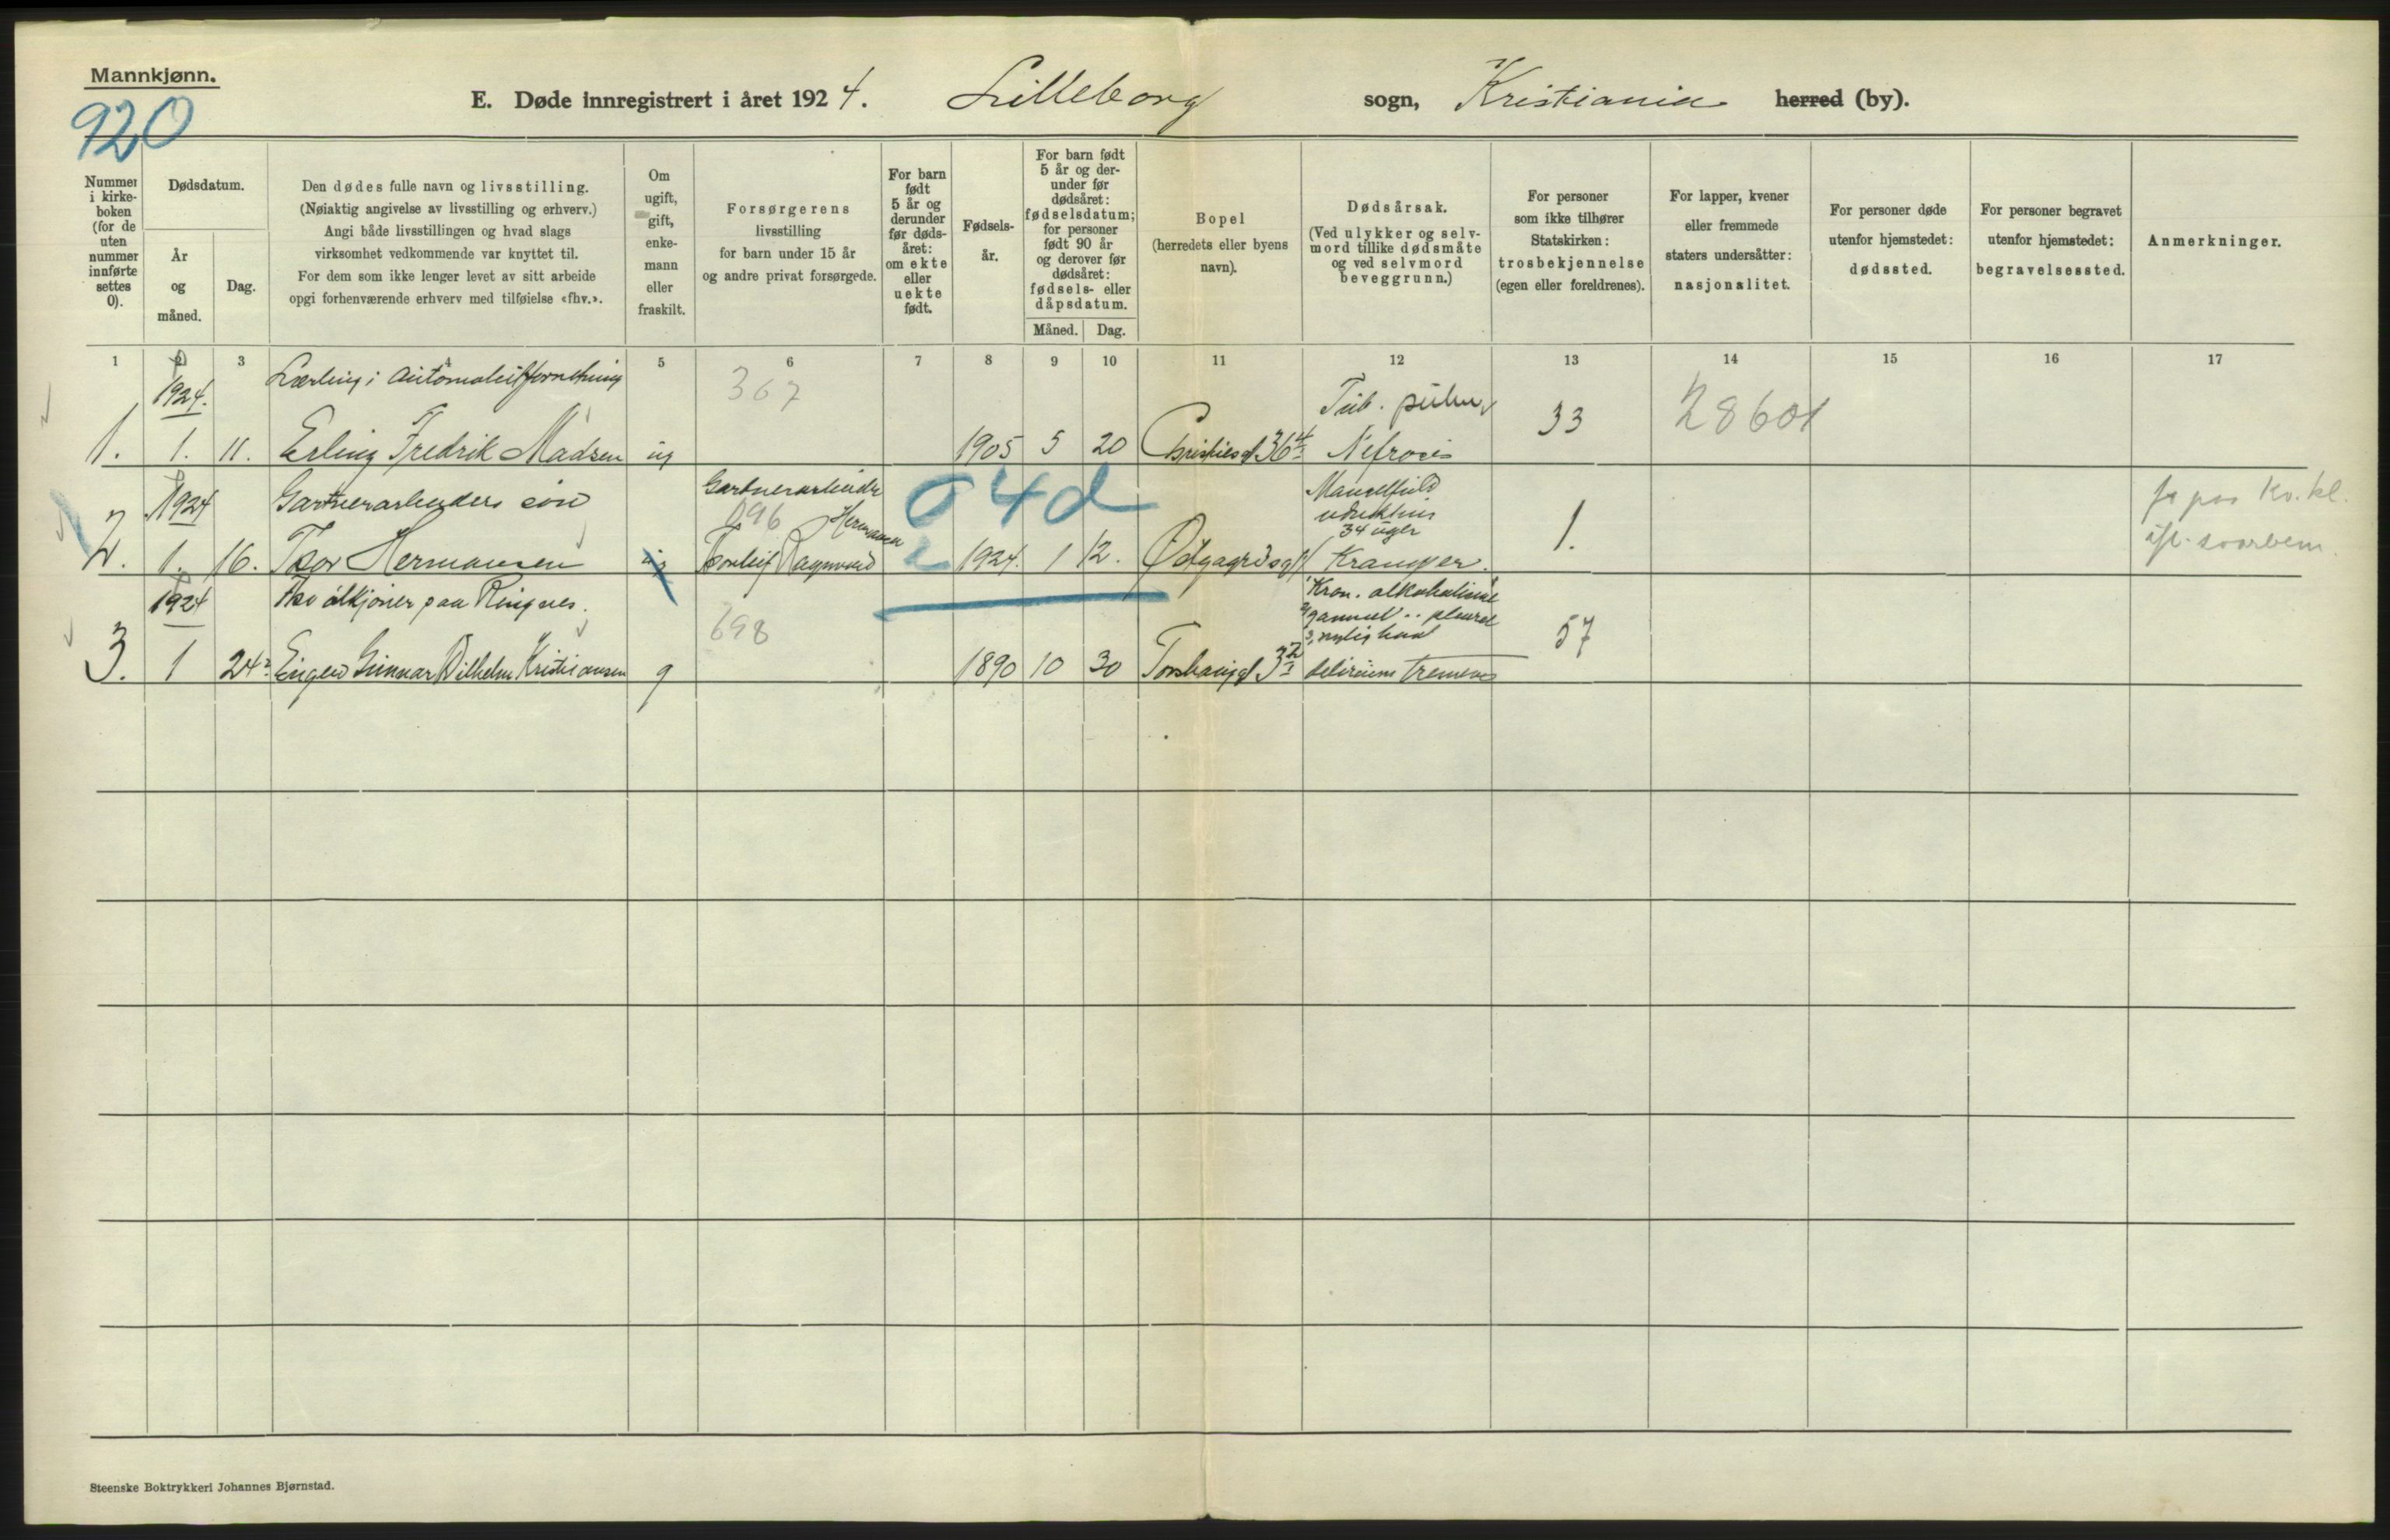 Mannkjønn.
920
E. Døde innregistrert i året 1924. Lilleborg sogn, Kristiania herred (by).
Nummer i kirkeboken (for de uten nummer innførte settes 0).
Dødsdatum.
År og måned.
Dag.
Den dødes fulle navn og livsstilling.
(Nøiaktig angivelse av livsstilling og erhverv.)
Angi både livsstillingen og hvad slags
virksomhet vedkommende var knyttet til.
For dem som ikke lenger levet av sitt arbeide
opgi forhenværende erhverv med tilføielse «fhv.».
Om
ugift,
gift,
enke-
mann
eller
fraskilt.
Forsørgerens
livsstilling
for barn under 15 år
og andre privat forsørgede.
For barn
født
5 år og
derunder
før døds-
året:
om ekte
eller
uekte
født.
Fødsels-
år.
For barn født
5 år og der-
under før
dødsåret:
fødselsdatum;
for personer
født 90 år
og derover før
dødsåret:
fødsels- eller
dåpsdatum.
Måned. Dag.
Bopel
(herredets eller byens
navn).
Dødsårsak.
(Ved ulykker og selv-
mord tillike dødsmåte
og ved selvmord
beveggrunn.)
For personer
som ikke tilhører
Statskirken:
trosbekjennelse
(egen eller foreldrenes).
For lapper, kvener
eller fremmede
staters undersåtter:
nasjonalitet.
For personer døde
utenfor hjemstedet:
dødssted.
For personer begravet
utenfor hjemstedet:
begravelsessted.
Anmerkninger.
1 2 3 4 5 6 7 8 9 10 11 12 13 14 15 16 17
1924. Lærling i Automobilforretning 367 Tub. pulm
1. 1. 11. Erling Fredrik Madsen ug 1905 5 20 Christiesgt 36 4/I Nefrosis 33 28601
1924 Gartnerarbeiders søn Gartnerarbeider 04d Mangelfuld
096 Hermansen 34 uger
2. 1. 16. Thor Hermansen ug Thorleif Ragnvald 1924. 1 12. Kramper. 1.
1924 ølkjører paa Ringnes. 698 Kron. alkoholisme
gammel pleurit
3. 1 24 Gunnar Wilhelm Kristiansen g 1890 10 30 Torshauggt 3 delirium tremens 57
Steenske Boktrykkeri Johannes Bjørnstad.